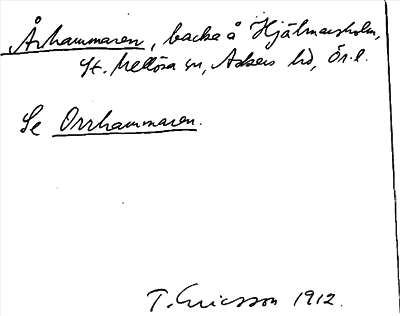 Århammaren, backa å Hjälmarsholm,
St. Mellösa sn, Askers hd, Ör. l.
Se Orrhammaren.
T. Ericsson 1912.